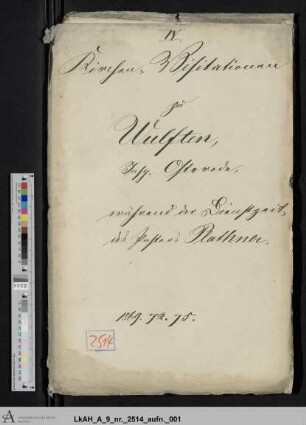 IV.
Kirchen-Visitationen
zu
Wulften,
Insp. Osterode,
während der Dienstzeit
des Pastors Plathner.
1869. 72. 75.
2514
LkAH_A_9_nr._2514_aufn._001